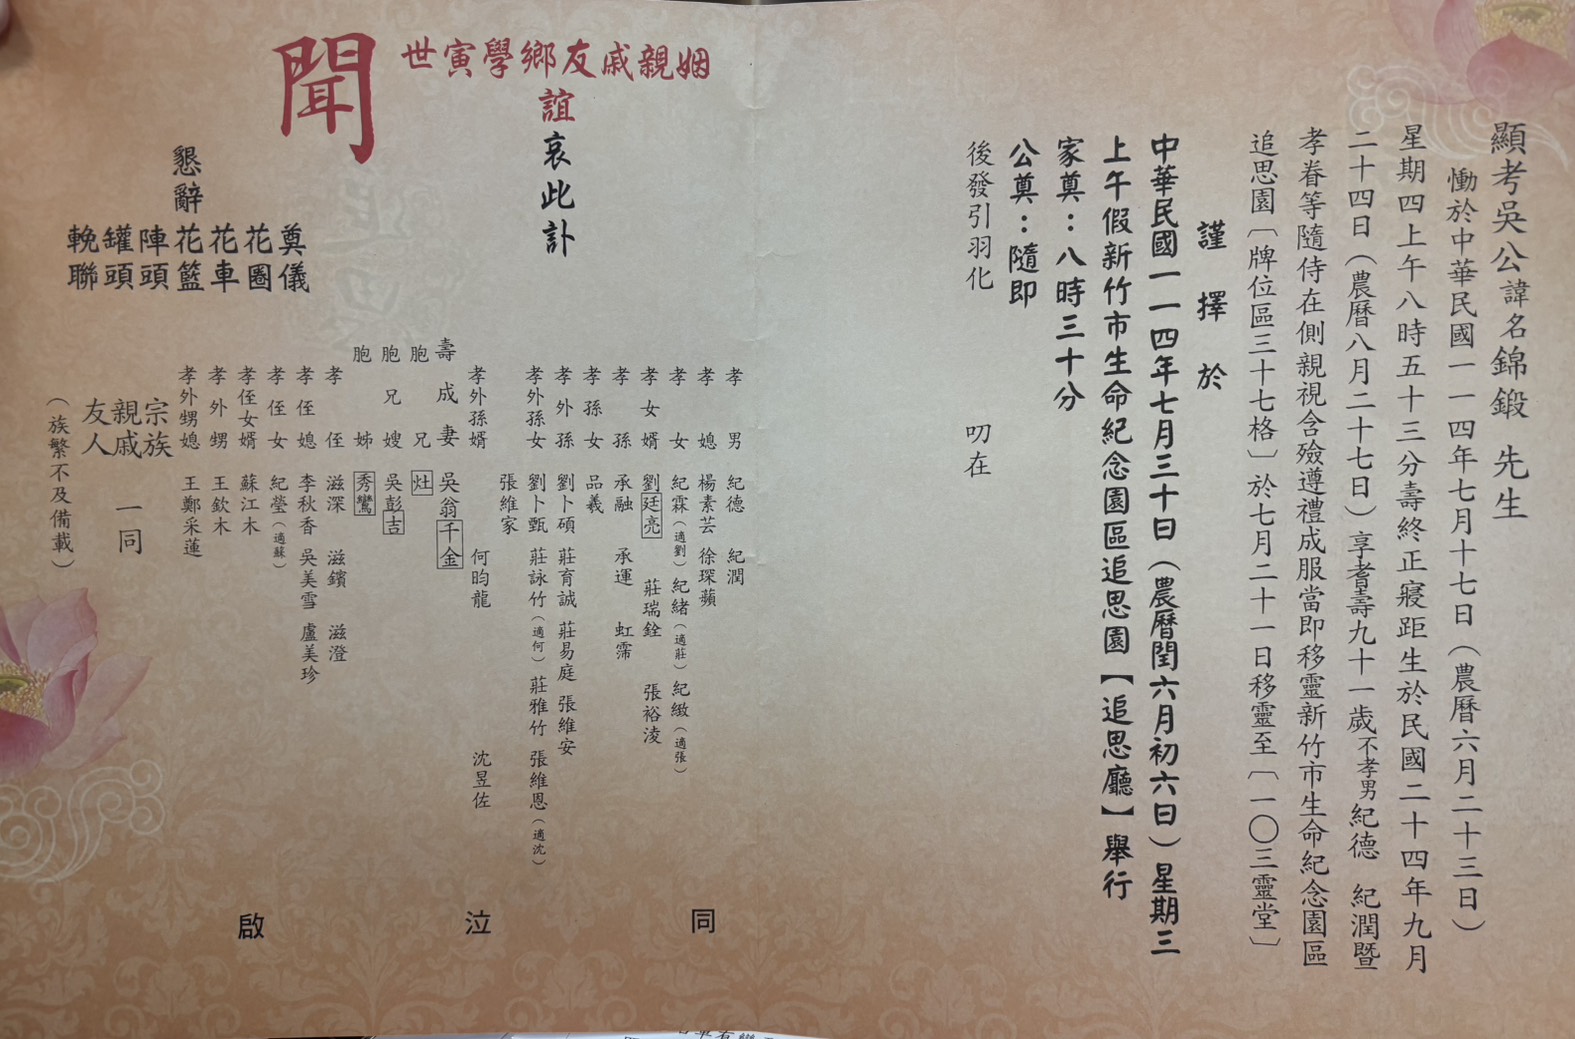 顯考吳公諱名錦鍛 先生
慟於中華民國一一四年七月十七日（農曆六月二十三日）
星期四上午八時五十三分壽終正寢距生於民國二十四年九月
二十四日（農曆八月二十七日）享耆壽九十一歲不孝男紀德 紀潤暨
孝眷等隨侍在側親視含殮遵禮成服當即移靈新竹市生命紀念園區
追思園〔牌位區三十七格〕於七月二十一日移靈至〔一〇三靈堂〕
謹擇於
中華民國一一四年七月三十日（農曆閏六月初六日）星期三
上午假新竹市生命紀念園區追思園【追思廳】舉行
家奠：八時三十分
公奠：隨即
後發引羽化 叨在
姻親戚友鄉學寅世
誼哀此訃
聞
孝男 紀德 紀潤
孝媳 楊素芸 徐琛蘋
孝女 紀霖（適劉）紀緒（適莊）紀緻（適張）
孝女婿 劉廷亮 莊瑞銓 張裕淩
孝孫 承融 承運 虹霈
孝孫女 品羲
孝外孫 劉卜碩 莊育誠 莊易庭 張維安
孝外孫女 劉卜甄 莊詠竹（適何）莊雅竹 張維恩（適沈）
張維家
孝外孫婿 何昀龍 沈昱佐
壽成妻 吳翁千金
胞兄 灶
胞兄嫂 吳彭吉
胞姊 秀鸞
孝侄 滋深 滋鑌 滋澄
孝侄媳 李秋香 吳美雪 盧美珍
孝侄女 紀瑩（適蘇）
孝侄女婿 蘇江木
孝外甥 王欽木
孝外甥媳 王鄭采蓮
宗族
親戚 一同
友人
（族繁不及備載）
同
泣
啟
懇辭
奠儀
花圈
花車
花籃
陣頭
罐頭
輓聯